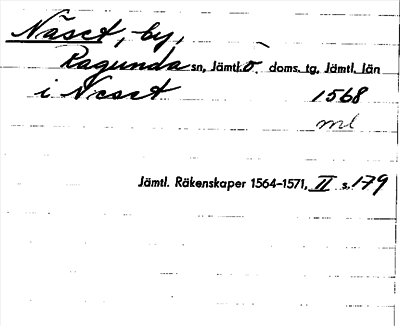 Näset, by,
Ragunda sn, Jämtl. ö. doms. tg, Jämtl. län
i Neset 1568
ml
Jämtl. Räkenskaper 1564–1571, II s. 179